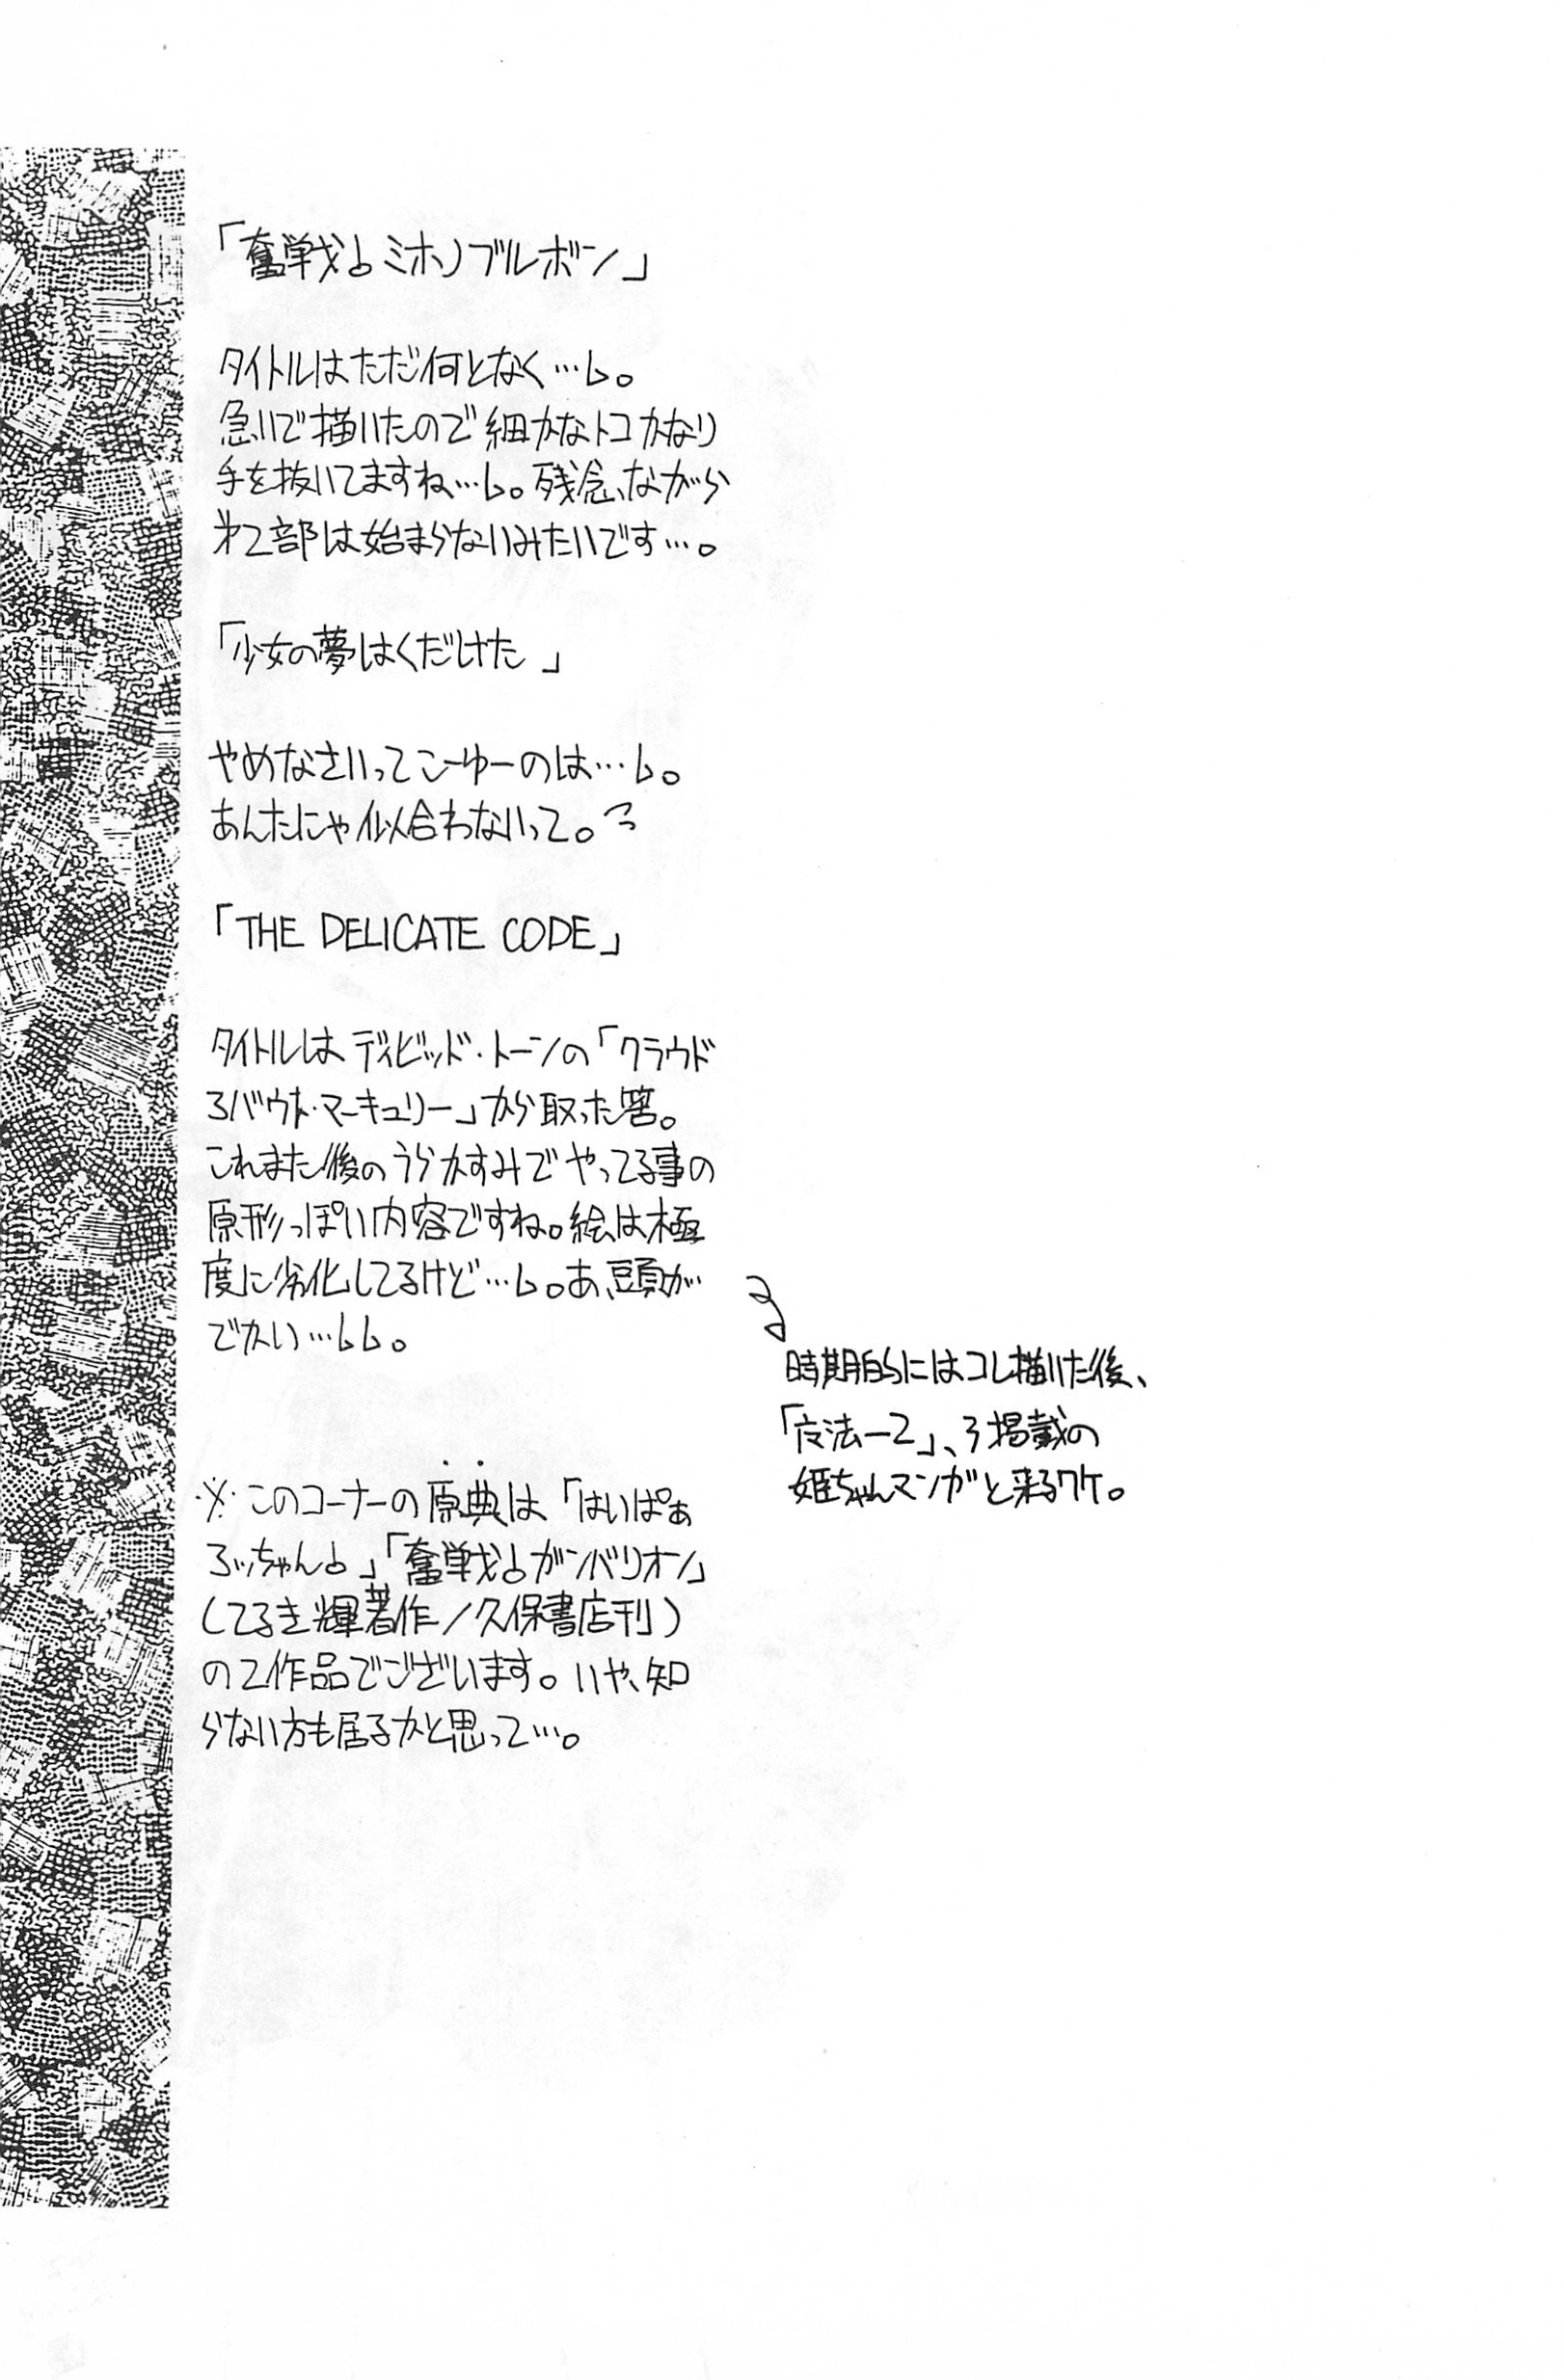 「奮戦♪ミホノブルボン」
タイトルはただ何となく…し。
急いで描いたので細かなトコかなり
手を抜いてますね…し。残念ながら
第2部は始まらないみたいです…。
「少女の夢はくだけた」
やめなさいってこーゆーのは…し。
あんたにゃ似合わないって。
「THE DELICATE CODE」
タイトルはディビッド・トーンの「クラウド
アバウト・マーキュリー」から取った筈。
これまた後のうらかすみでやってる事の
原形っぽい内容ですね。絵は極
度に劣化してるけど…し。あ、頭が
でかい…しし。
時期的にはコレ描いた後、
「夜法ー2」、3掲載の
姫ちゃんマンガと来るワケ。
※このコーナーの原典は「はいぱぁ
ろッちゃん♪」「奮戦♪ガンバリオン」
(てるき輝著作/久保書店刊)
の2作品でございます。いや、知
らない方も居るかと思って…。